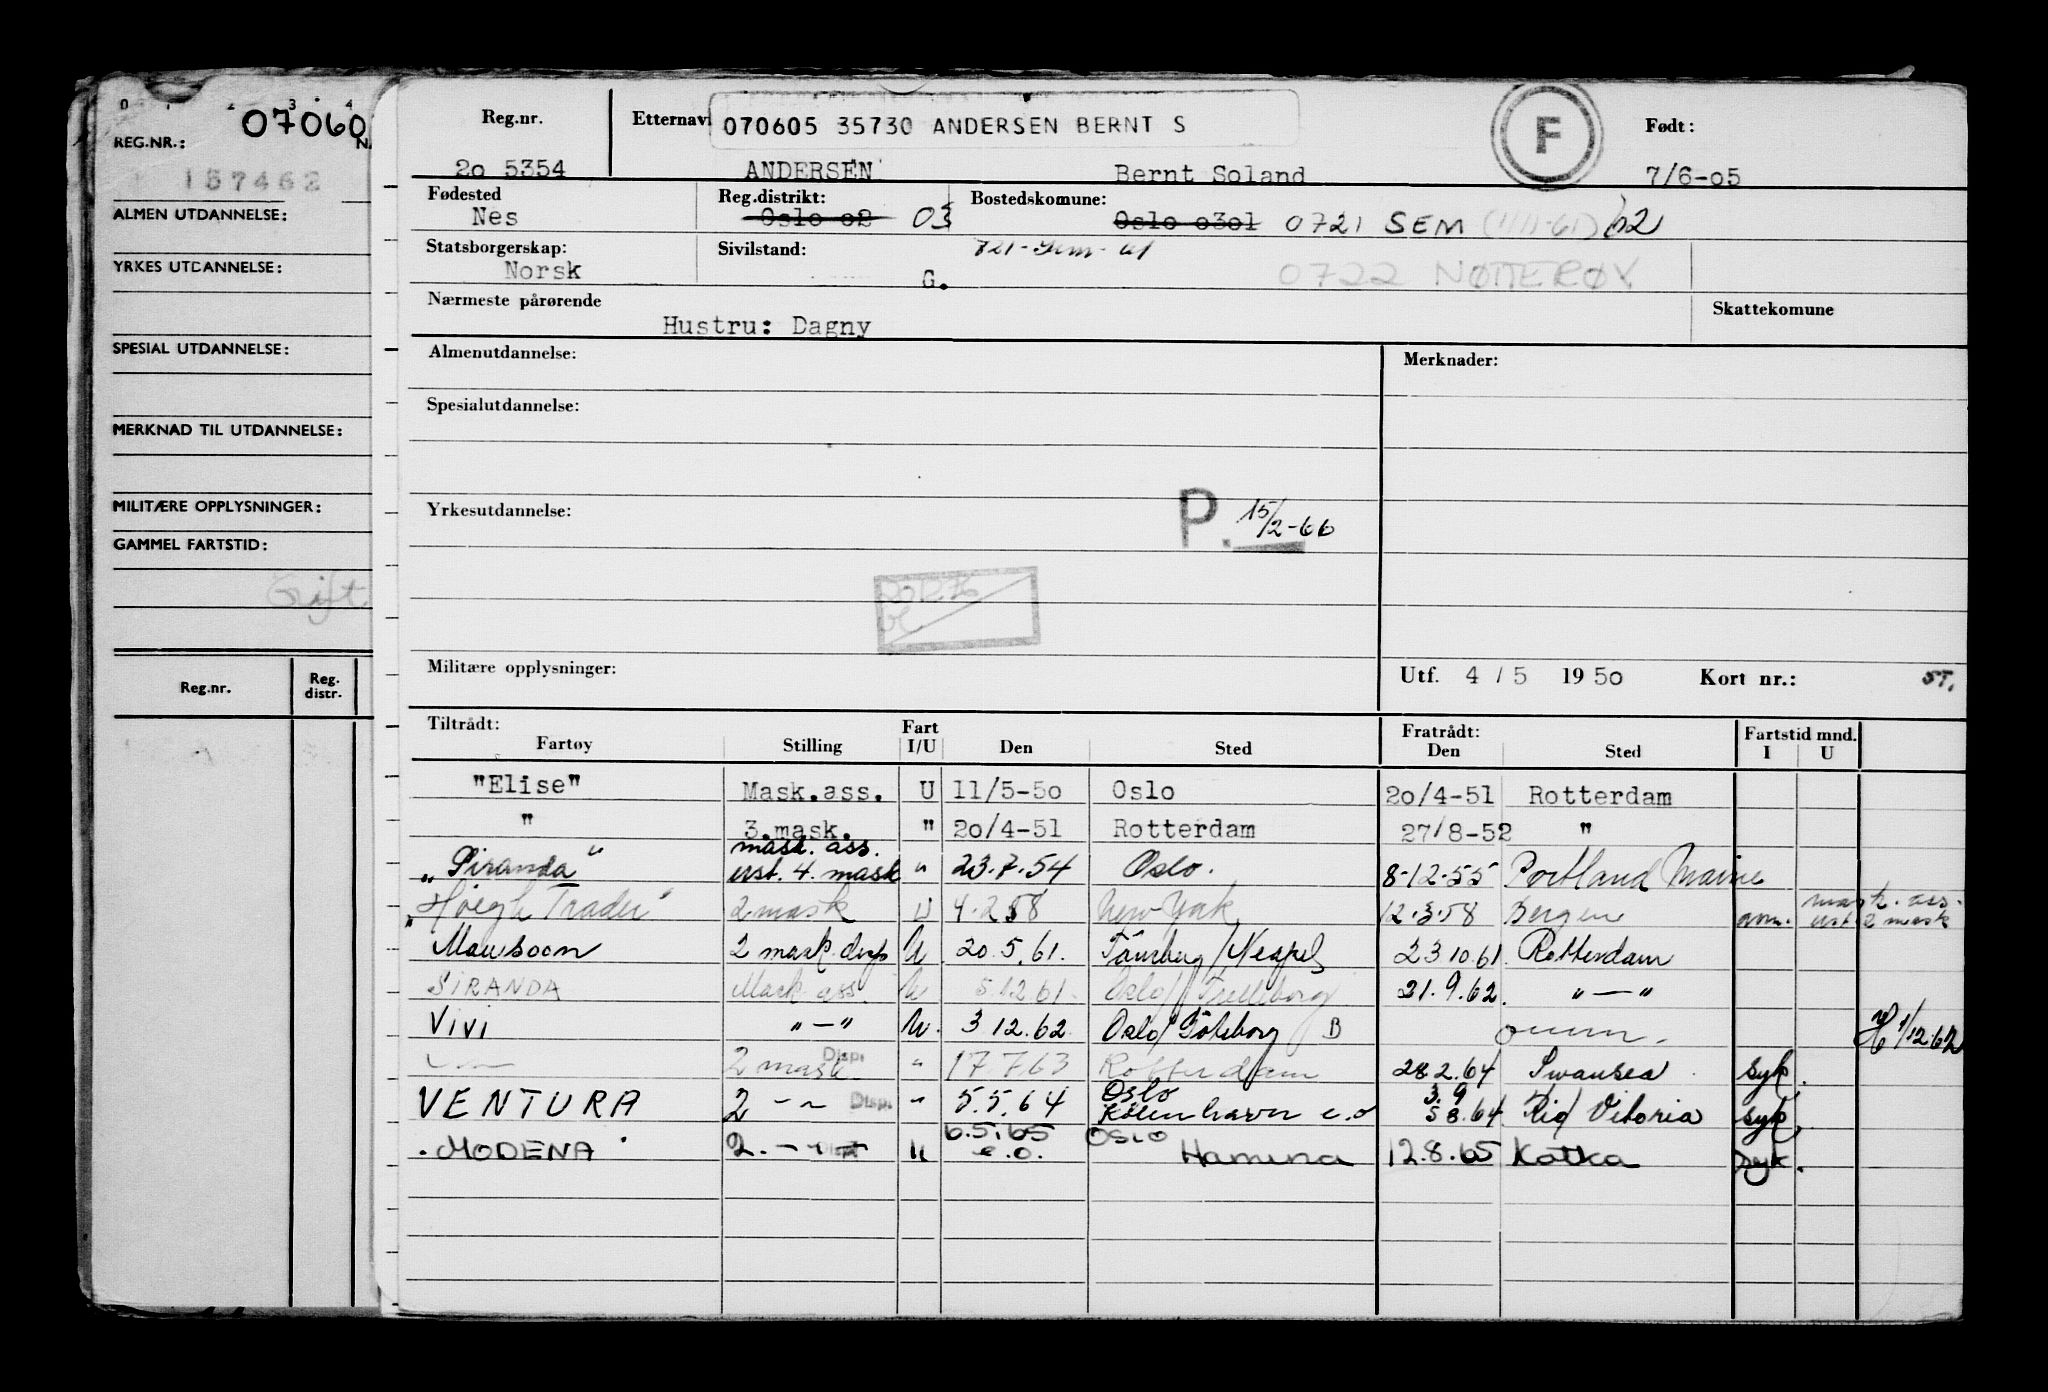 0 1 2 3 4
REG.NR.: 07060
157462
ALMEN UTDANNELSE:
YRKES UTDANNELSE:
SPESIAL UTDANNELSE:
MERKNAD TIL UTDANNELSE:
MILITÆRE OPPLYSNINGER:
GAMMEL FARTSTID:
Gift
Reg.nr. Reg. distr.
Reg.nr. Etternavn 070605 35730 ANDERSEN BERNT S F Født:
2o 5354 ANDERSEN Bernt Soland 7/6-o5
Fødested Reg.distrikt: Bostedskomune:
Nes Oslo o2 03 Oslo o3ol 0721 SEM (1/11-61) 62
Statsborgerskap: Sivilstand: 721-Sem-61
Norsk G. 0722 NØTTERØY
Nærmeste pårørende Skattekomune
Hustru: Dagny
Almenutdannelse: Merknader:
Spesialutdannelse:
Yrkesutdannelse: P. 15/2-66
Militære opplysninger: Utf. 4 / 5 19 5o Kort nr.: 5T.
Tiltrådt: Fart Fratrådt: Fartstid mnd.
Fartøy Stilling I/U Den Sted Den Sted I U
"Elise" Mask.ass. U 11/5-5o Oslo 2o/4-51 Rotterdam
" 3.mask. " 2o/4-51 Rotterdam 27/8-52 "
mask. ass.
"Siranda" ust. 4. mask " 23.7.54 Oslo. 8-12-55 Portland Maine
mask. ass.
"Høegh Trader" 2 mask U 4.2.58 New York 12.3.58 Bergen avm. ust. 2 mask
Mausoon 2 mask. disp U 20.5.61. Tønsberg/Neapel 23 10.61. Rotterdam
SIRANDA Mask. ass. U 5.12.61. Oslo/Trelleborg 21.9.62. "—"
Vivi "—" U. 3 12.62. Oslo/Göteborg B omm. H 1/12.62
2 mask Disp. " 17 7 63 Rotterdam 28 2.64 Swansea syk.
Oslo 3.9
VENTURA 2 -~ Disp. " 5.5.64 København e.o 5 8.64 Rio/Vitoria syk.
6.5.65 OSLO
"MODENA" 2.-"- U e.o. Hamina 12.8.65 Kotka syk.